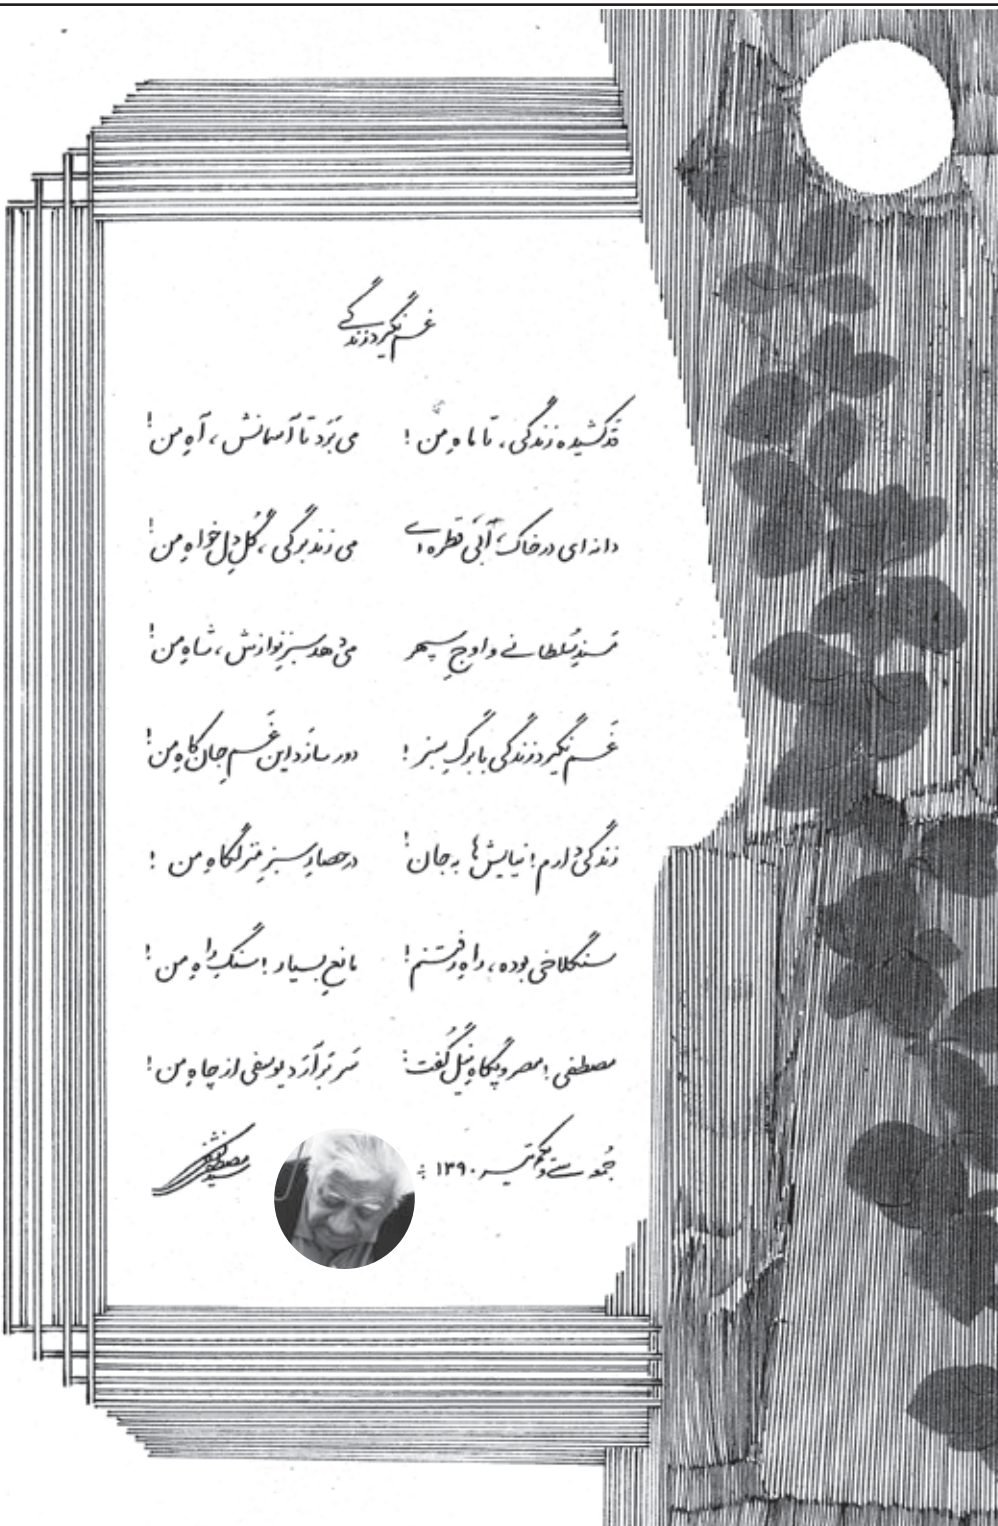 غم نگیرد زندگی
قد کشیده زندگی، تا ماهِ من! می بَرَد تا آسمانش، آهِ من!
دانه ای در خاک، آبی قطره ای می زند برگی، گُلِ دل خواهِ من!
مَسندِ سُلطانی و اوجِ سپهر می دهد سبزِ نوازش، شاهِ من!
غَم نگیرد زندگی با برگِ سبز! دور سازد این غَمِ جان کاهِ من!
زندگی دارم! نیایش ها به جان! در حصارِ سبزِ منزلگاهِ من!
سنگلاخی بوده، راهِ رفتنم! مانعِ بسیار! سنگِ راهِ من!
مصطفی! مصر و پگاهِ نیل گفت: سر برآرَد یوسفی از چاهِ من!
جُمعه سی و یکم تیر ۱۳۹۰